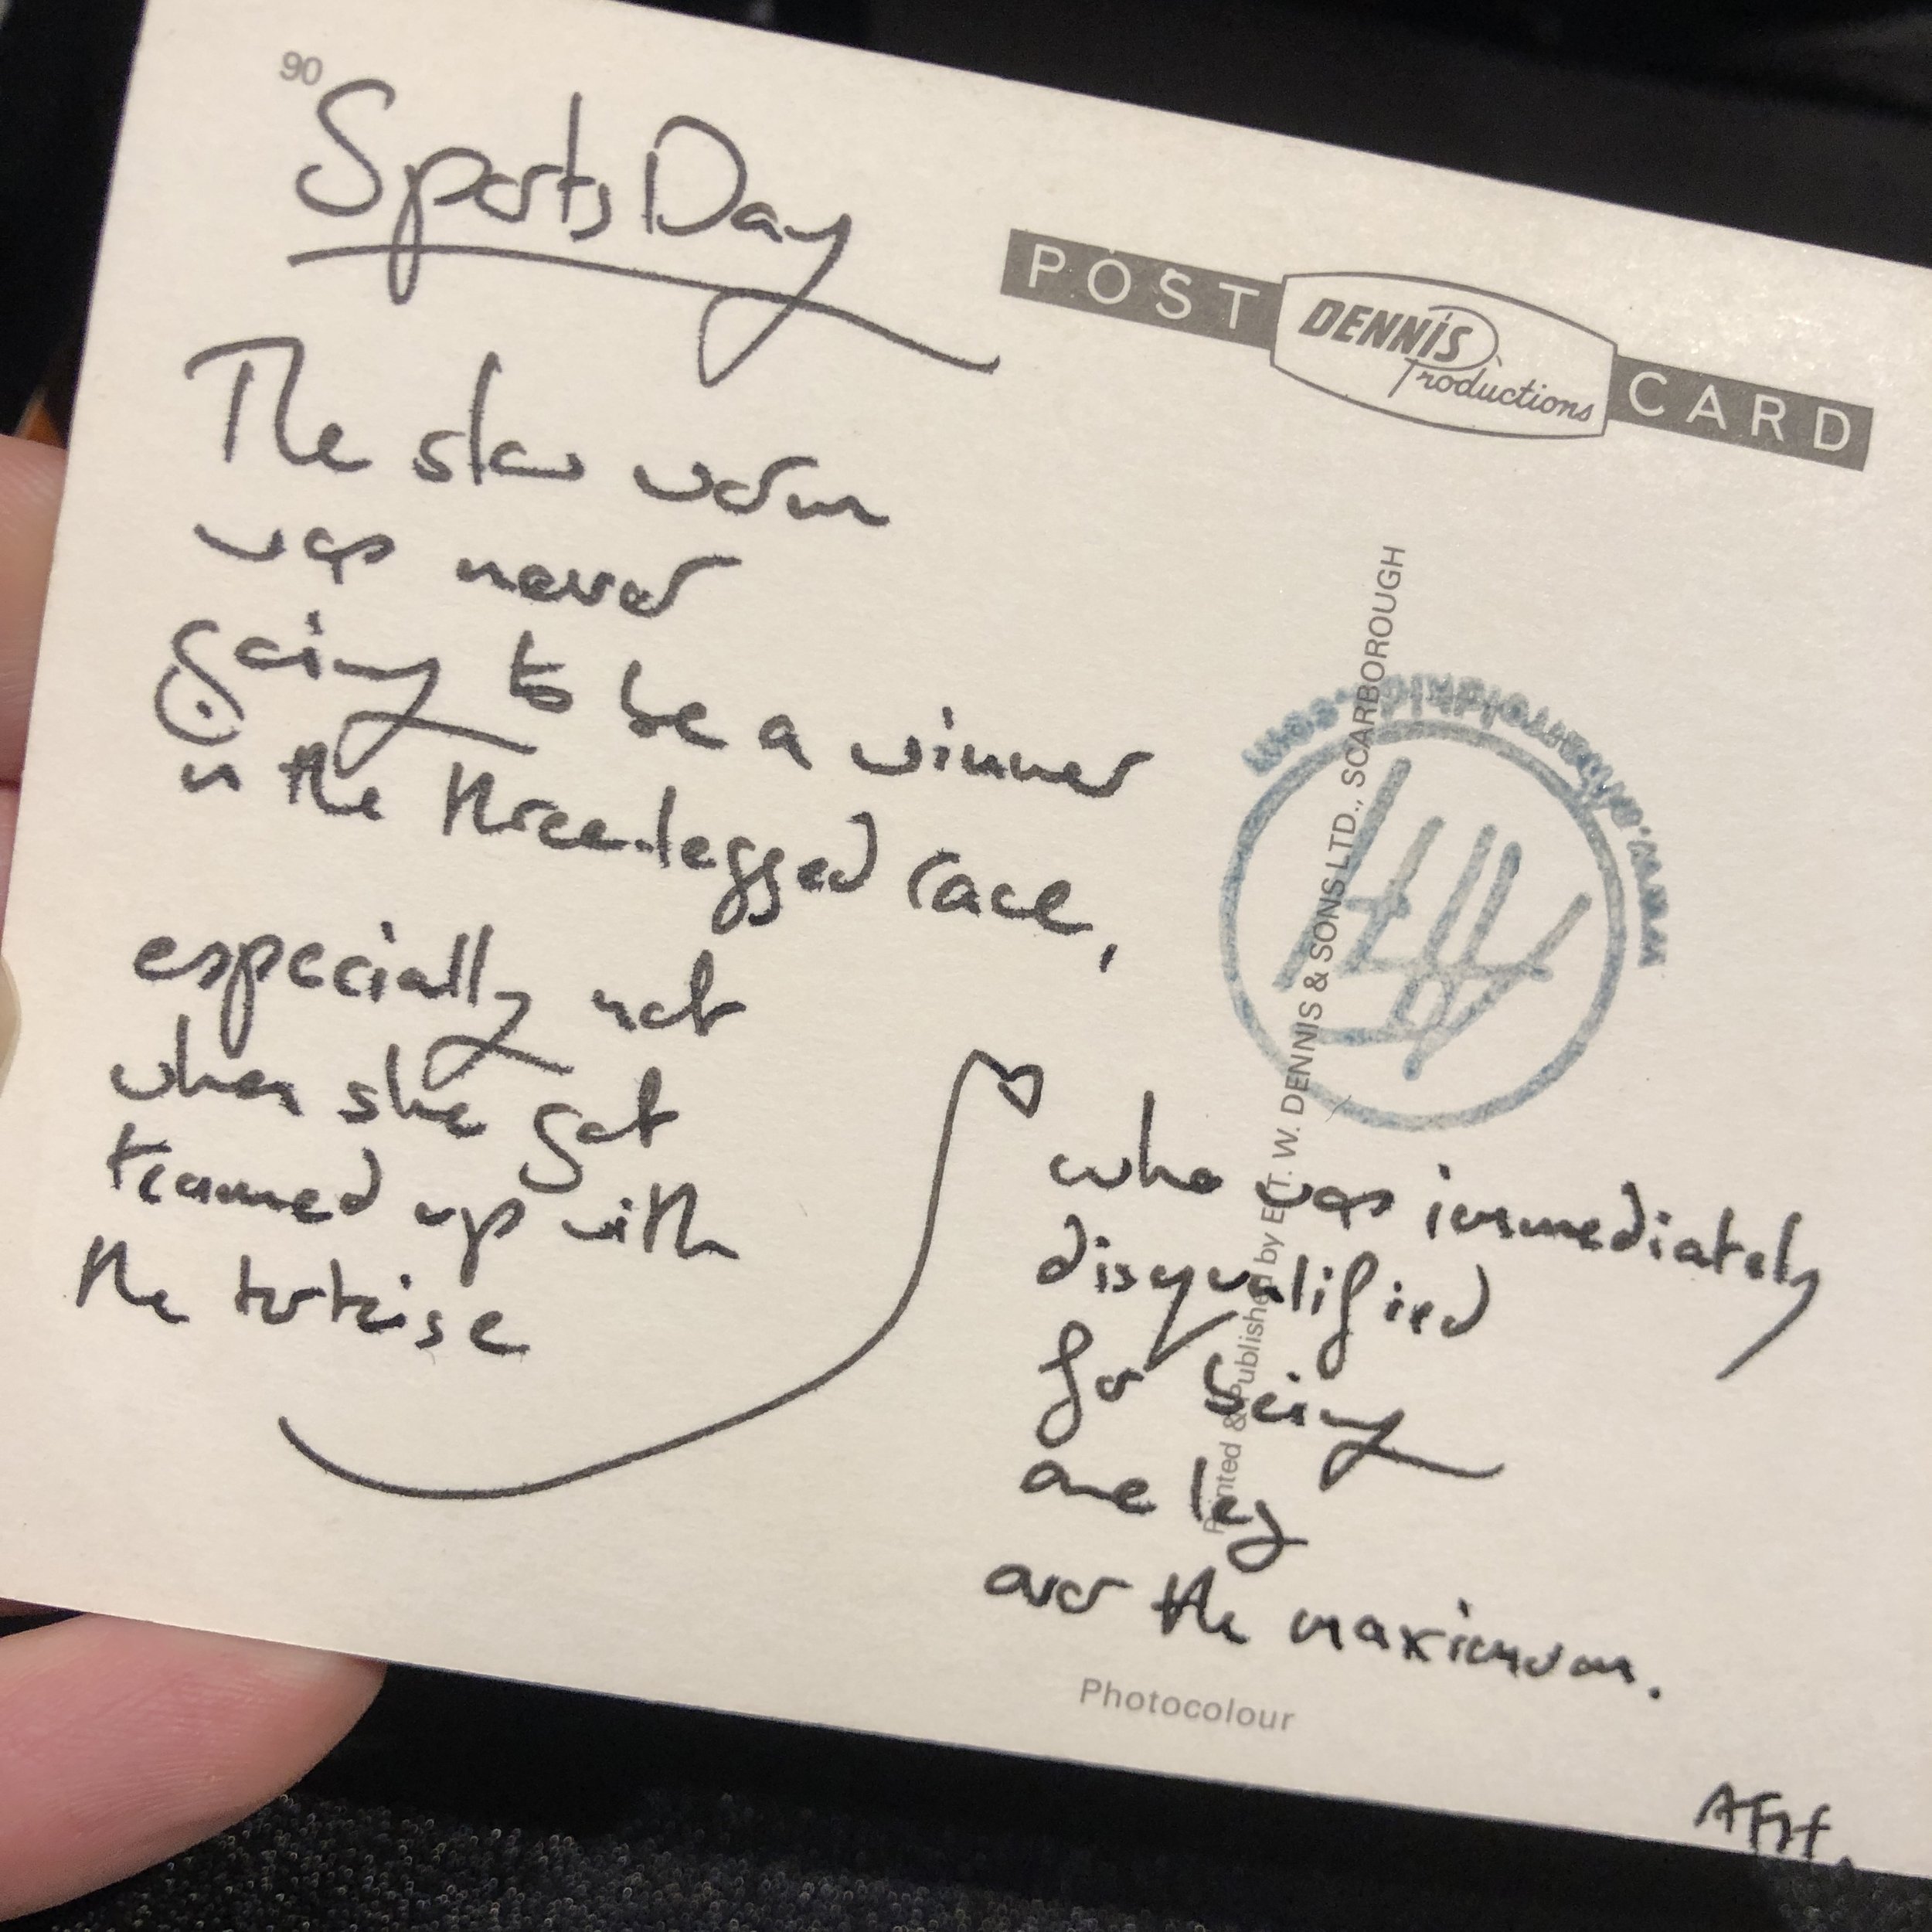 90
Sports Day
POST DENNIS Productions CARD
The slow worm
was never
going to be a winner
in the three-legged race,
especially not
when she got
teamed up with
the tortoise
who was immediately
disqualified
for being
one leg
over the maximum.
Printed & Published by E. T. W. DENNIS & SONS LTD., SCARBOROUGH
Photocolour
AFH.